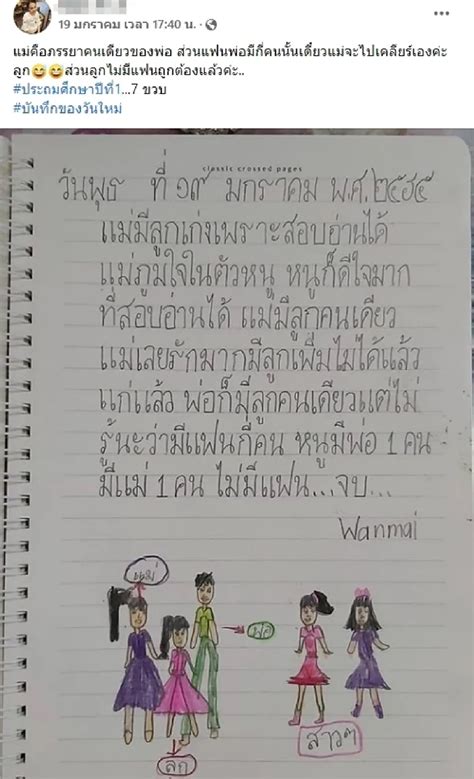 19 มกราคม เวลา 17:40 น.
แม่คือภรรยาคนเดียวของพ่อ ส่วนแฟนพ่อมีกี่คนนั้นเดี๋ยวแม่จะไปเคลียร์เองค่ะ
ลูก😅😅ส่วนลูกไม่มีแฟนถูกต้องแล้วค่ะ..
#ประถมศึกษาปีที่1...7 ขวบ
#บันทึกของวันใหม่
classic crossed pages
วันพุธ ที่ ๑๙ มกราคม พ.ศ.๒๕๖๕
แม่มีลูกเก่งเพราะสอบอ่านได้
แม่ภูมิใจในตัวหนู หนูก็ดีใจมาก
ที่สอบอ่านได้ แม่มีลูกคนเดียว
แม่เลยรักมากมีลูกเพิ่มไม่ได้แล้ว
แก่แล้ว พ่อก็มีลูกคนเดียวแต่ไม่
รู้นะว่ามีแฟนกี่คน หนูมีพ่อ 1 คน
มีแม่ 1 คน ไม่มีแฟน...จบ...
Wanmai
แม่
พ่อ
ลูก
สาวๆ